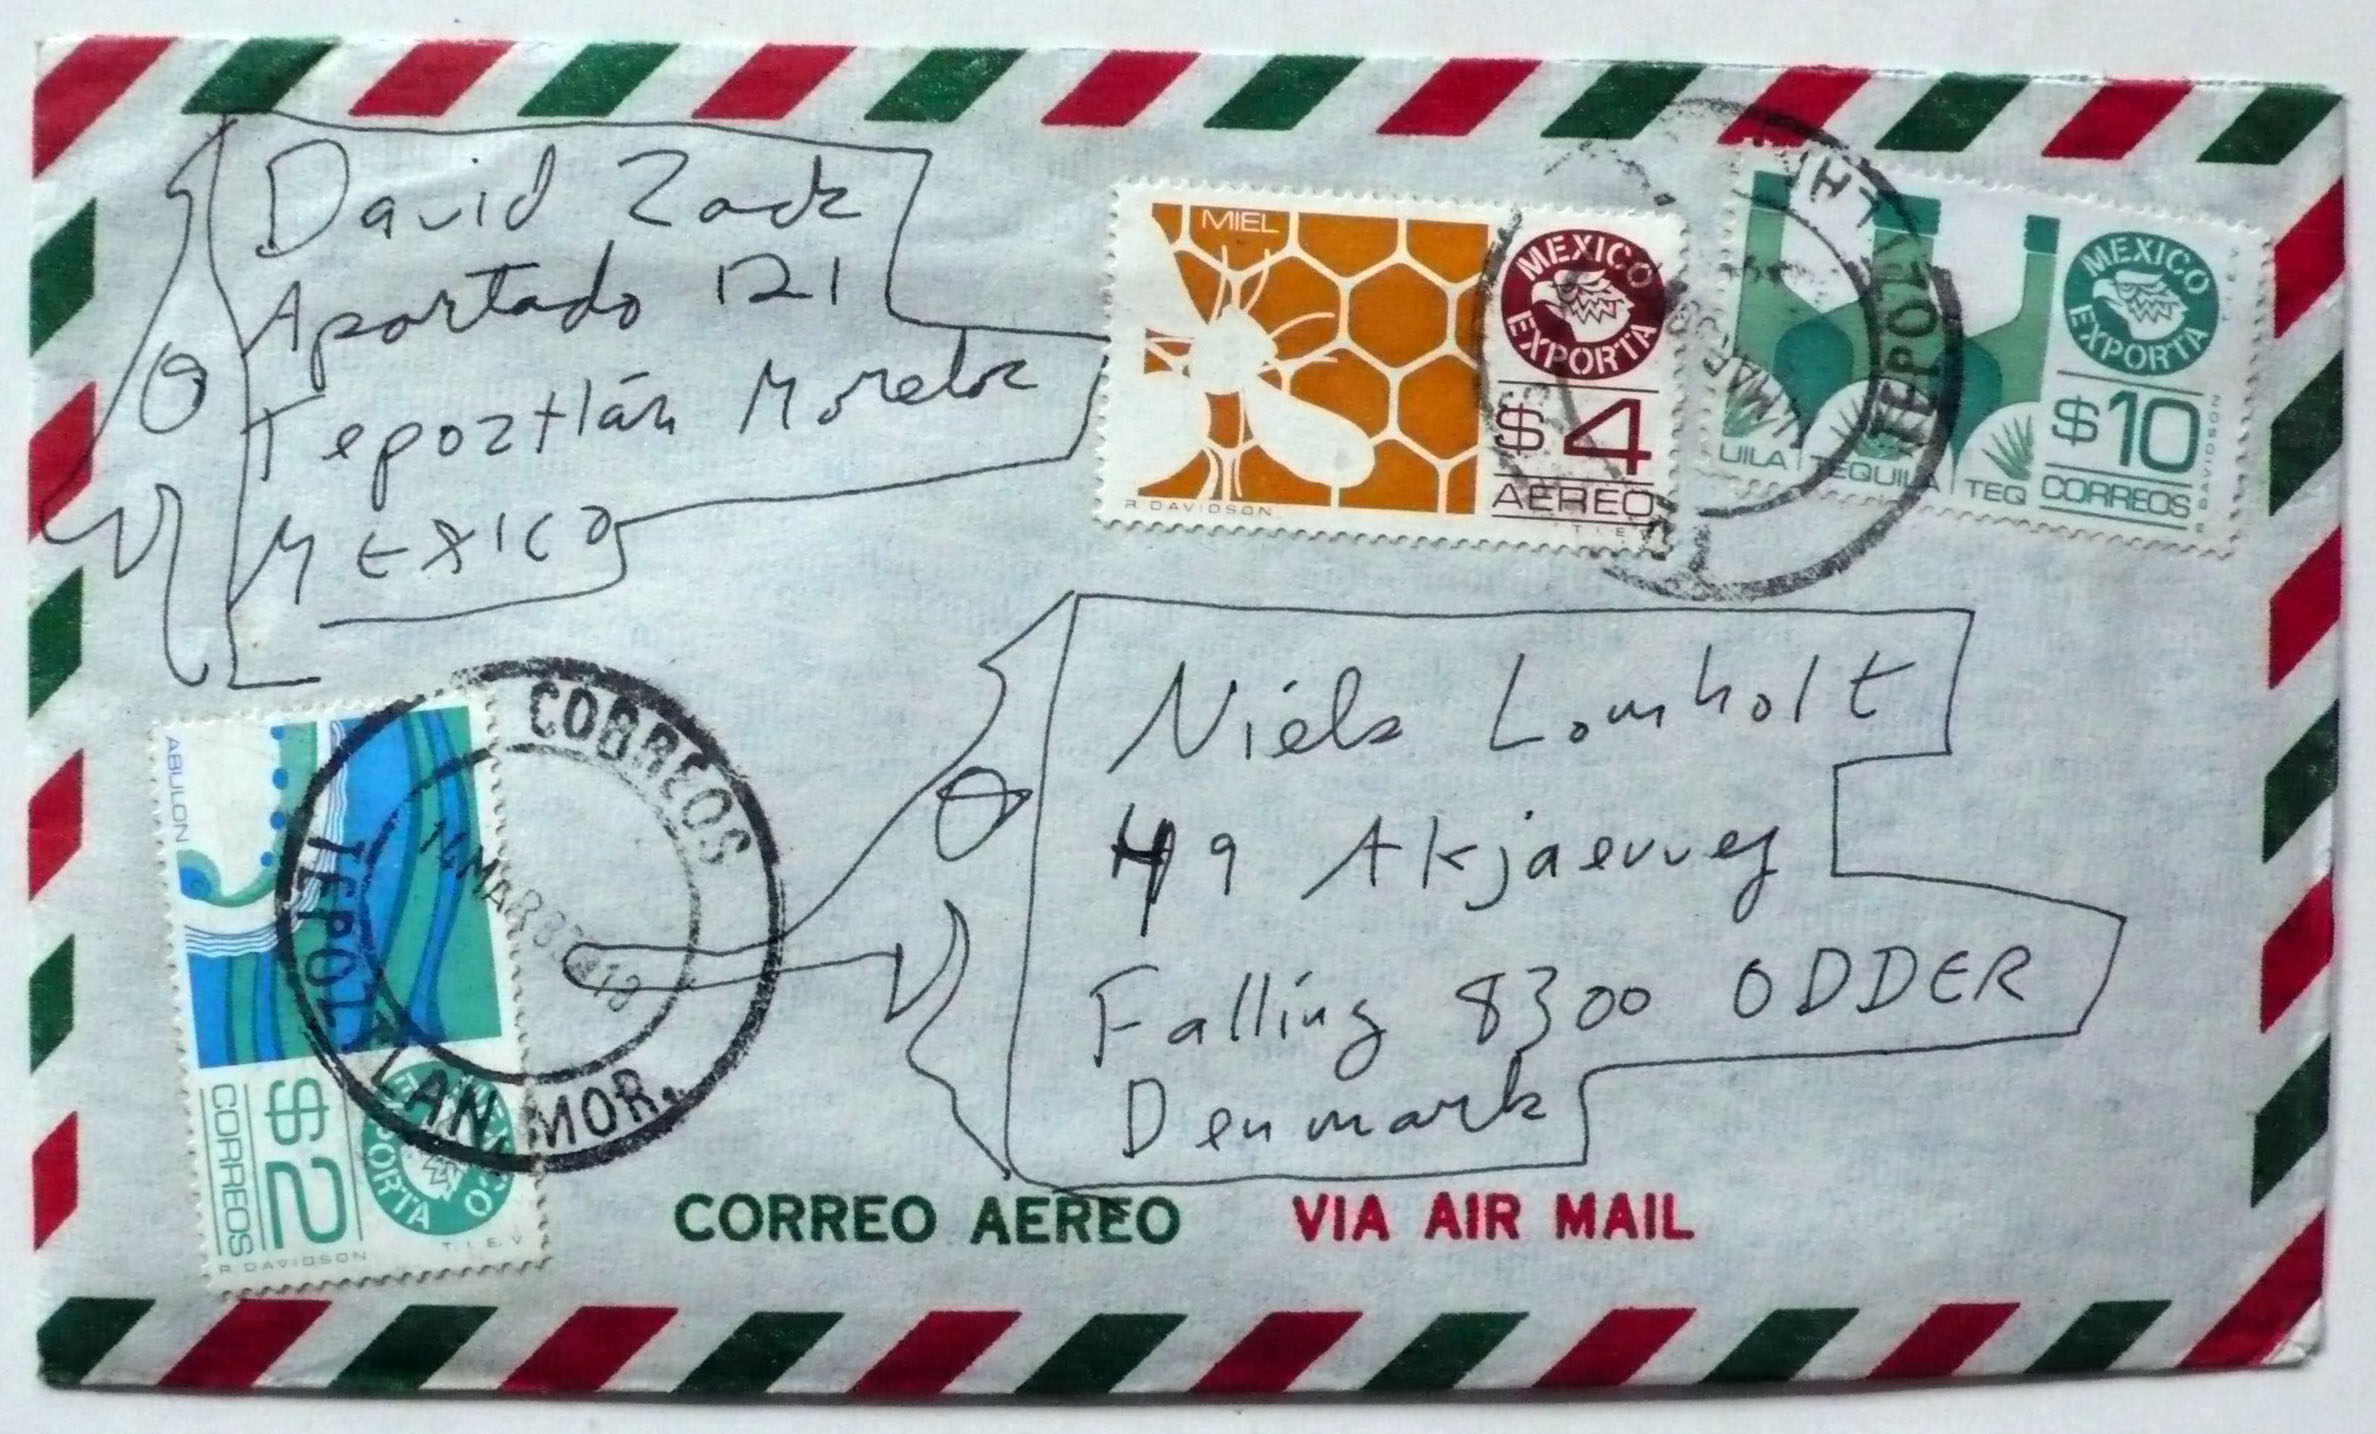 David Zack
Apartado 121
Tepoztlán Morelos
MEXICO
MIEL
MEXICO
EXPORTA
$4
AEREO
R. DAVIDSON
T. I. E.
TEPOZTLA
MAR
UILA TEQUILA TEQ
MEXICO
EXPORTA
$10
CORREOS
R. DAVIDSON
T. I. E. V.
Niels Lomholt
49 Akjaervej
Falling 8300 ODDER
Denmark
ABULON
$2
CORREOS
MEXICO
EXPORTA
R. DAVIDSON
T. I. E. V.
CORREOS
TEPOZTLAN MOR.
CORREO AEREO VIA AIR MAIL